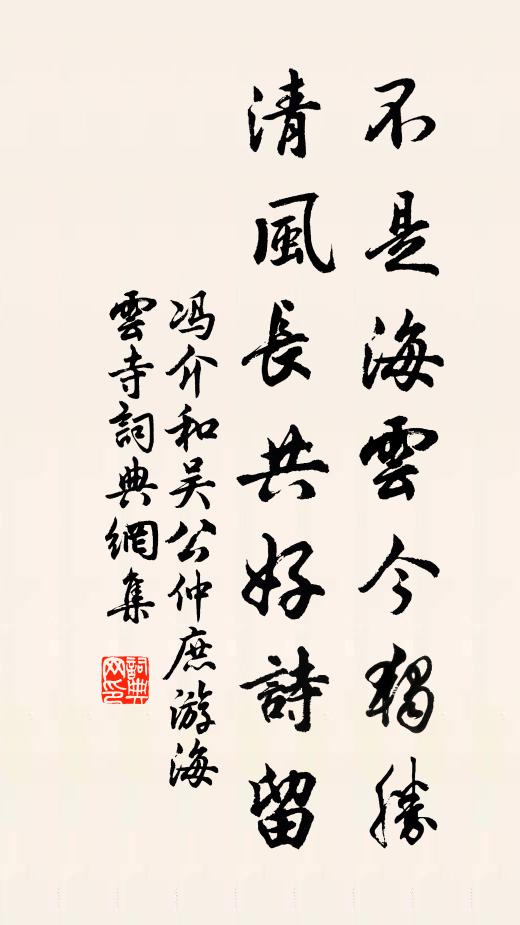 不是海雲今獨勝
清風長共好詩留
冯介和吴公仲庶游海
雲寺詞典網集
詞典网印